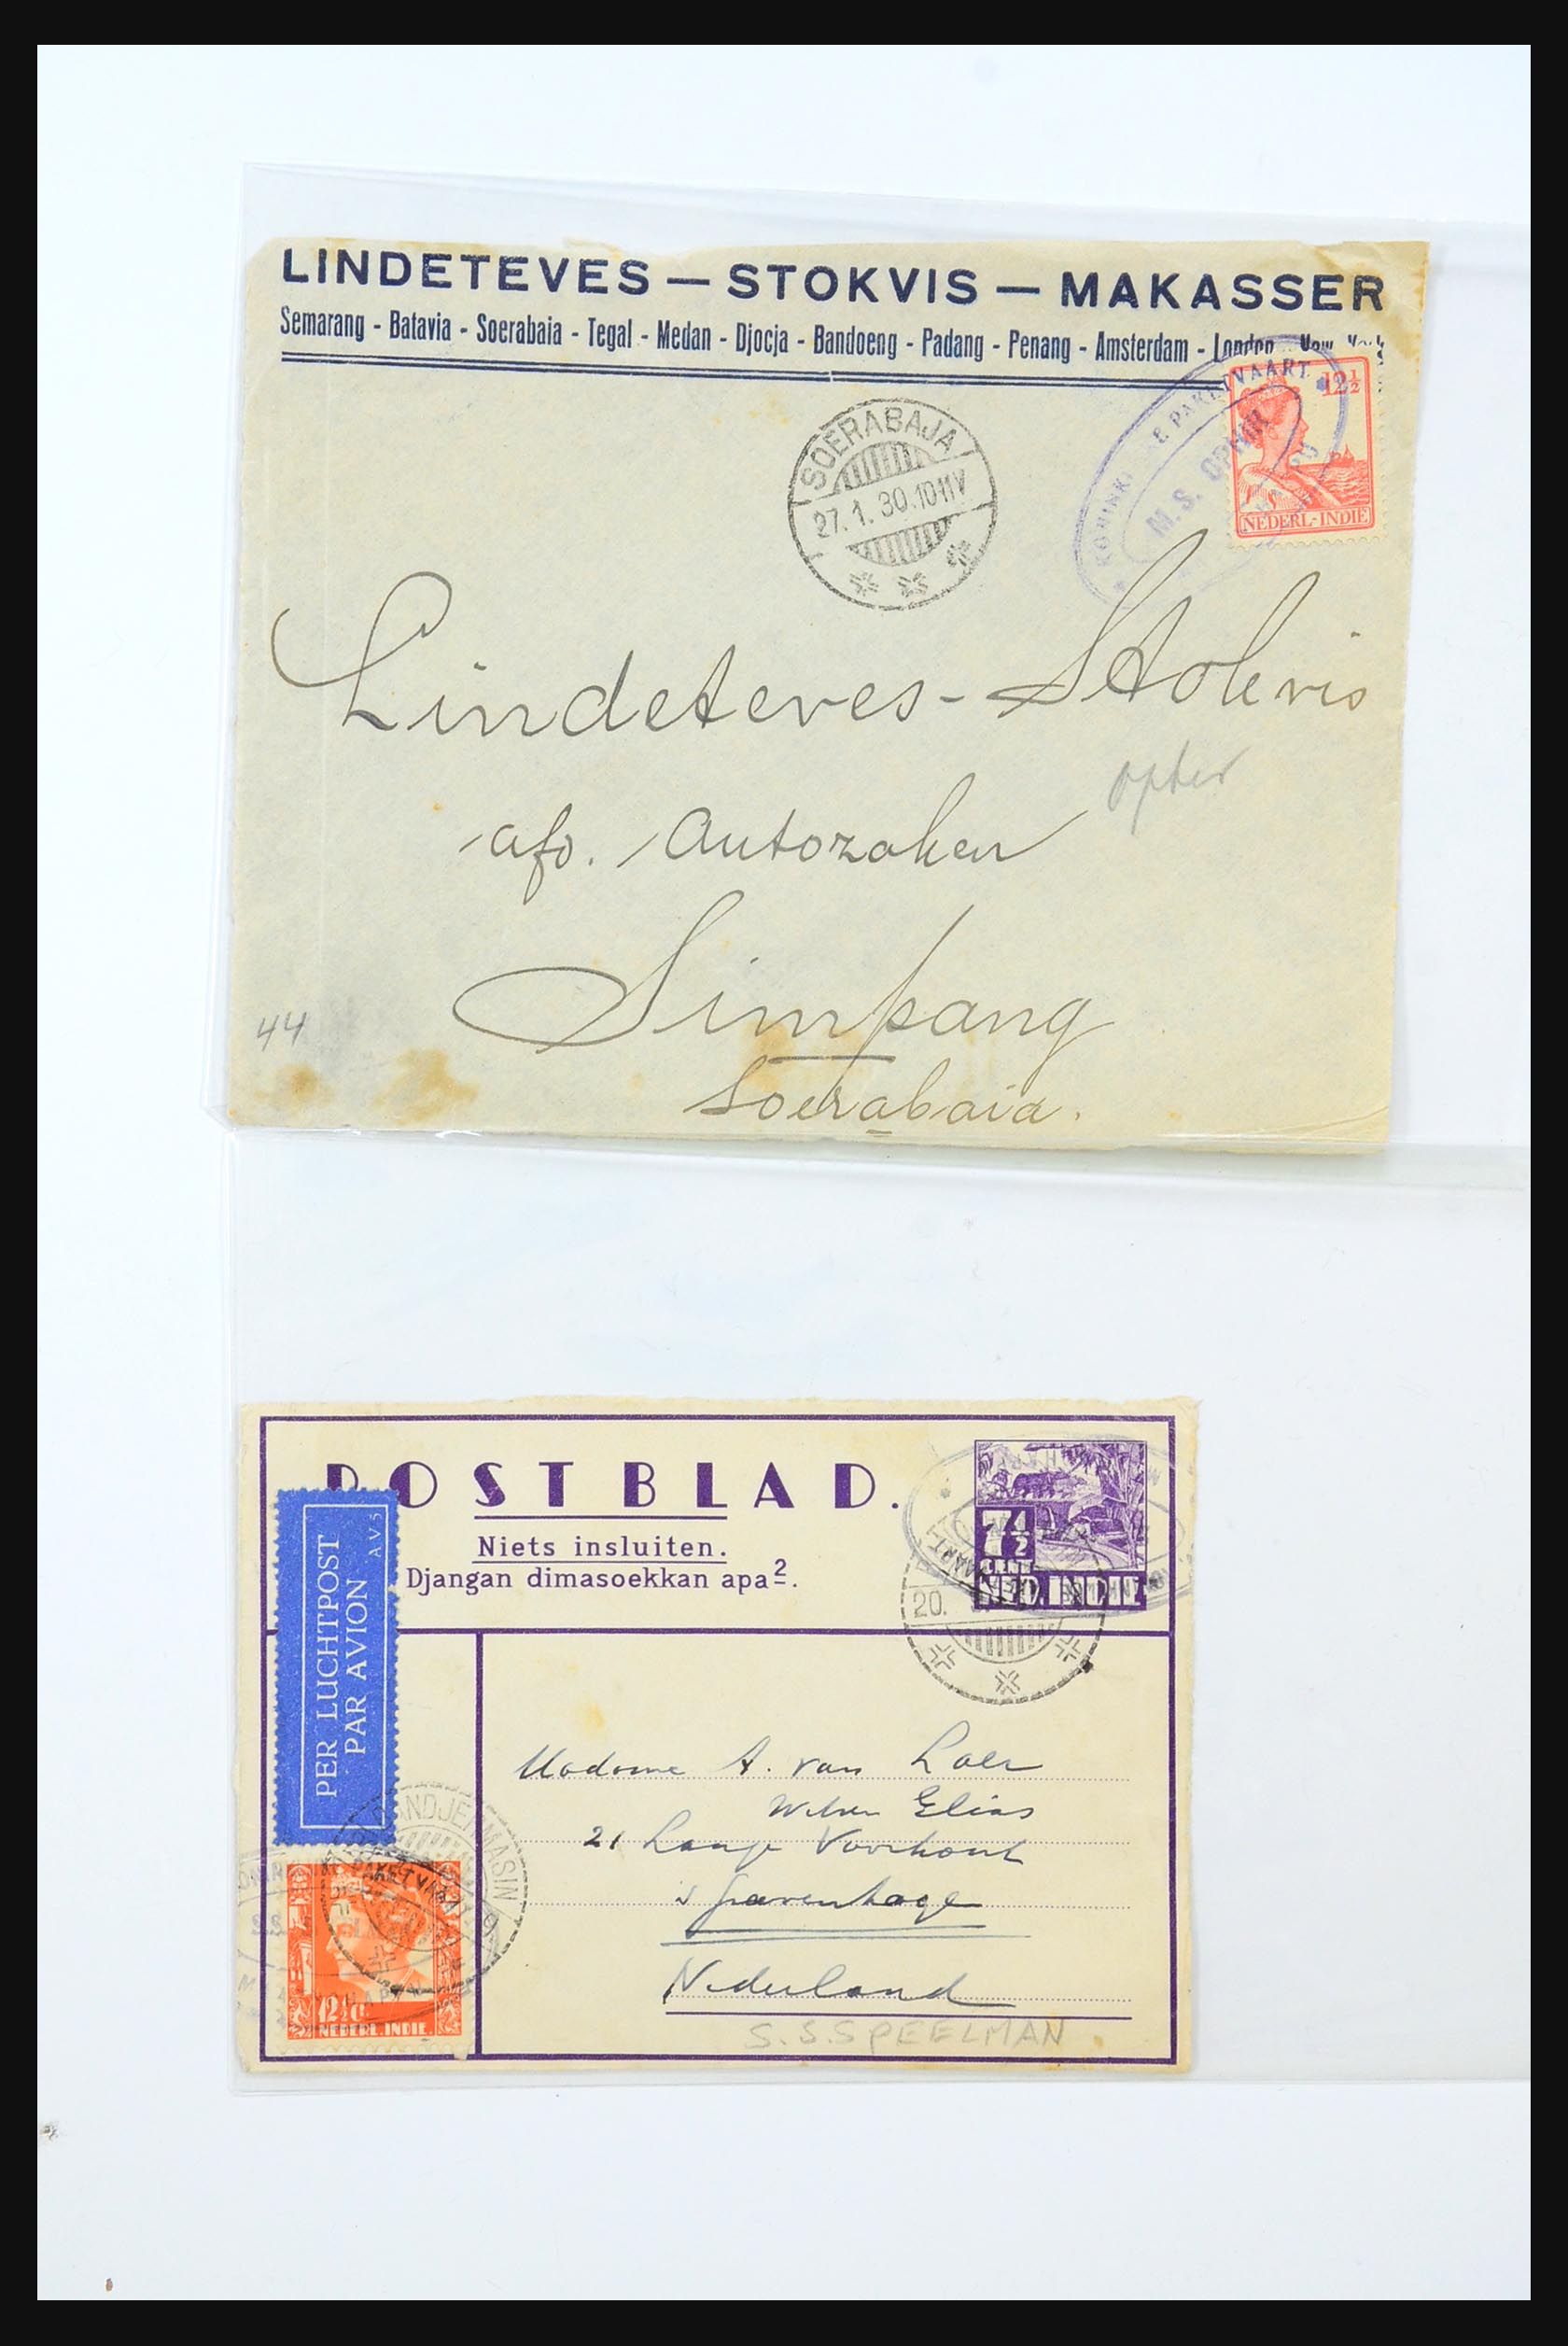 LINDETEVES — STOKVIS — MAKASSER
Semarang - Batavia - Soerabaia - Tegal - Medan - Djocja - Bandoeng - Padang - Penang - Amsterdam - London - New York
PAKETVAART
M.S. OPHIR
12½
NEDERL-INDIE
SOERABAJA
27.1.30.10-11V
Lindeteves - Stokvis
afd. Autozaken
Simpang
Soerabaia.
44
POSTBLAD.
Niets insluiten.
Djangan dimasoekkan apa².
7½
CENT
NED. INDIE
20.
PER LUCHTPOST
PAR AVION
AV5
BANDJERMASIN
PAKETVAART
12½ c
NEDERL. INDIE.
Madame A. van Loer
Elias
21 Lange Voorhout
's Gravenhage
Nederland
S.S. SPEELMAN